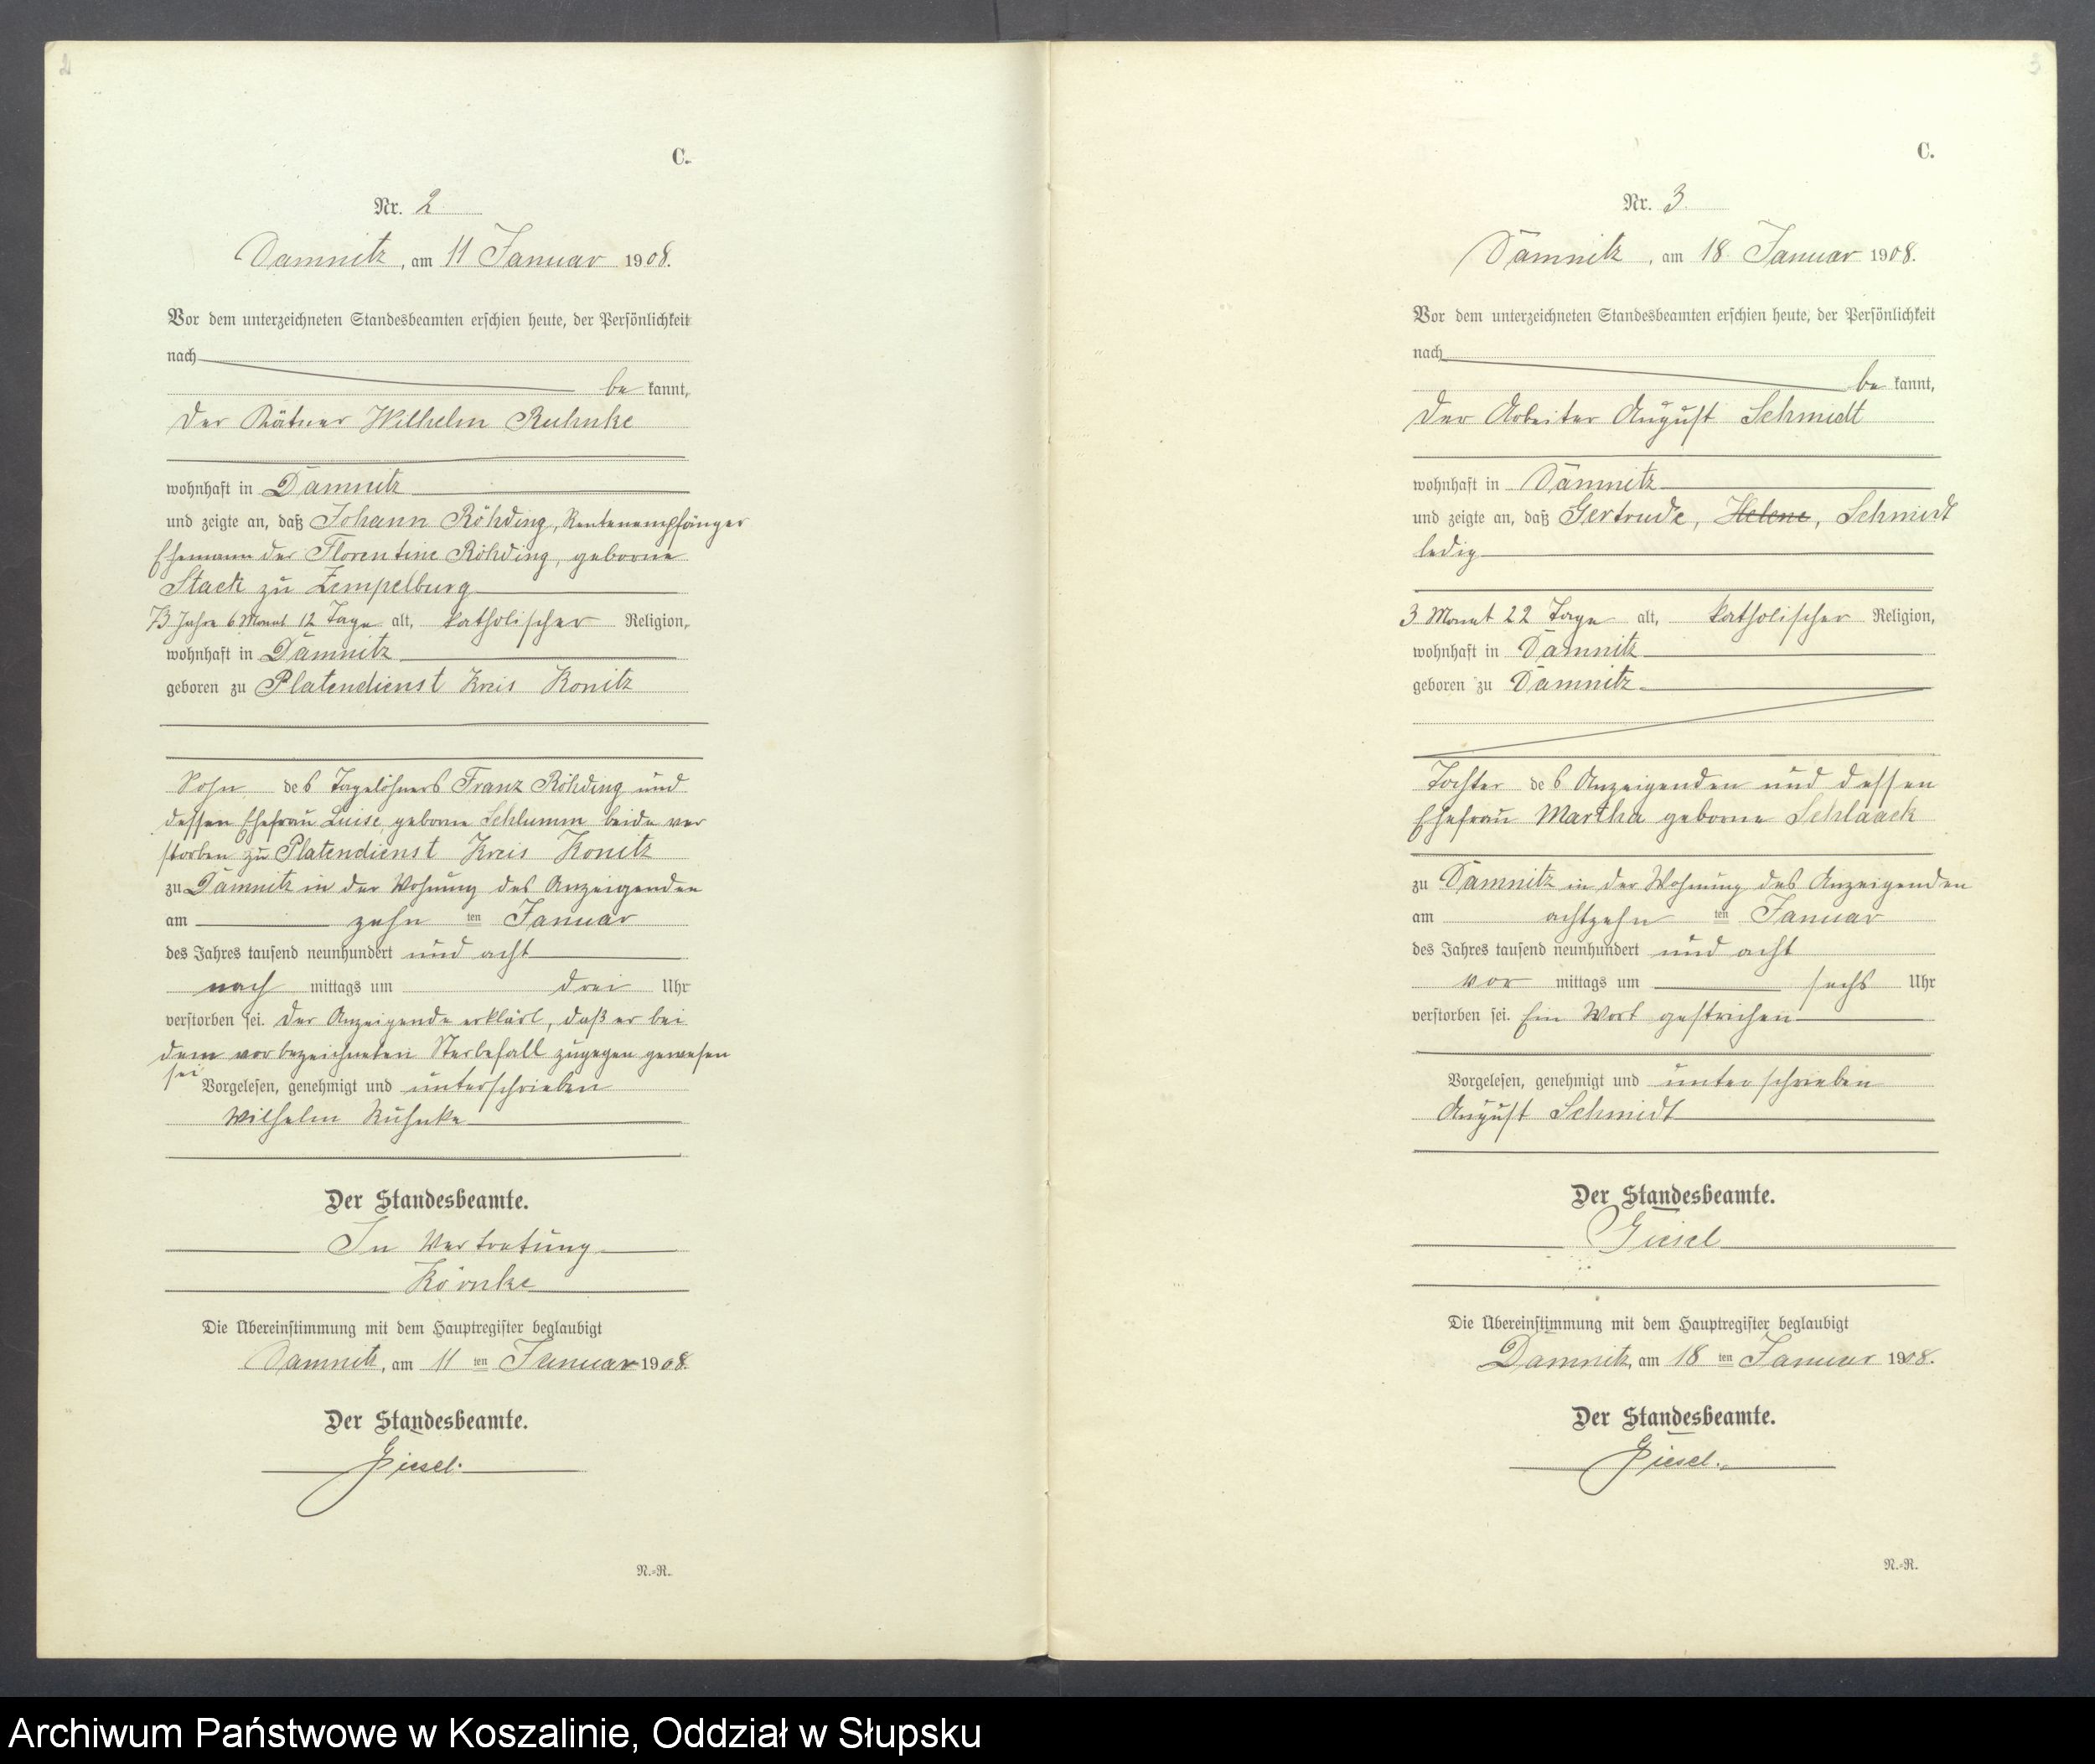 2
C.
Nr. 2
Damnitz, am 11 Januar 1908.
Vor dem unterzeichneten Standesbeamten erschien heute, der Persönlichkeit
nach
be kannt,
der Kätner Wilhelm Ruhnke
wohnhaft in Damnitz
und zeigte an, daß Johann Röhding, Rentenempfänger
Ehemann der Florentine Röhding, geborne
Stack zu Zempelburg
73 Jahre 6 Monat 12 Tage alt, katholischer Religion,
wohnhaft in Damnitz
geboren zu Platendienst Kreis Konitz
Sohn des Tagelöhners Franz Röhding und
dessen Ehefrau Luise, geborne Schlumm beide ver
storben zu Platendienst Kreis Konitz
zu Damnitz in der Wohnung des Anzeigenden
am zehn ten Januar
des Jahres tausend neunhundert und acht
nach mittags um drei Uhr
verstorben sei. Der Anzeigende erklärt, daß er bei
dem vorbezeichneten Sterbefall zugegen gewesen
sei
Vorgelesen, genehmigt und unterschrieben
Wilhelm Ruhnke
Der Standesbeamte.
In Vertretung
Körnke
Die Übereinstimmung mit dem Hauptregister beglaubigt
Damnitz, am 11 ten Januar 1908.
Der Standesbeamte.
Giesel.
N.=R.
3
C.
Nr. 3.
Damnitz, am 18. Januar 1908.
Vor dem unterzeichneten Standesbeamten erschien heute, der Persönlichkeit
nach
be kannt,
der Arbeiter August Schmidt
wohnhaft in Damnitz
und zeigte an, daß Gertrude, Helene, Schmidt
ledig
3 Monat 22 Tage alt, katholischer Religion,
wohnhaft in Damnitz
geboren zu Damnitz
Tochter des Anzeigenden und dessen
Ehefrau Martha geborne Schlaack
zu Damnitz in der Wohnung des Anzeigenden
am achtzehn ten Januar
des Jahres tausend neunhundert und acht
vor mittags um sechs Uhr
verstorben sei. Ein Wort gestrichen
Vorgelesen, genehmigt und unterschrieben
August Schmidt
Der Standesbeamte.
Giesel
Die Übereinstimmung mit dem Hauptregister beglaubigt
Damnitz, am 18 ten Januar 1908.
Der Standesbeamte.
Giesel.
N.=R.
Archiwum Państwowe w Koszalinie, Oddział w Słupsku